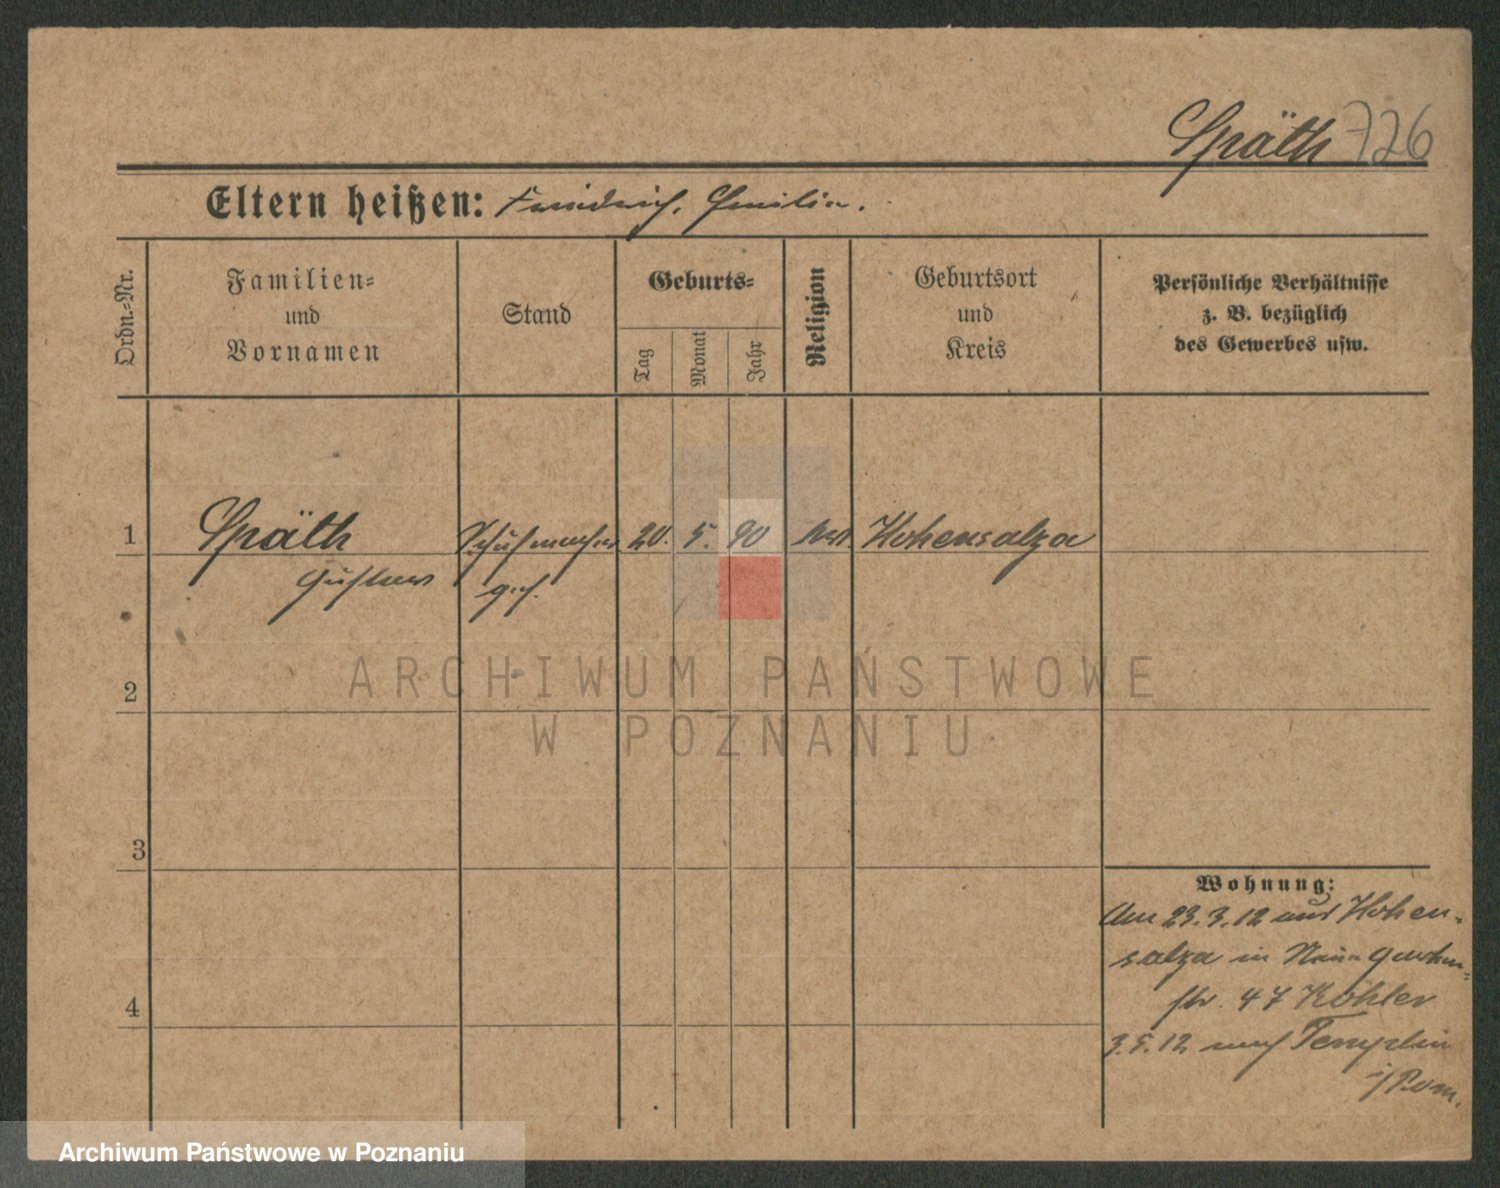 Späth 726
Eltern heißen: Friedrich, Emilie.
Ordn.-Nr.
Familien-
und
Vornamen
Stand
Geburts-
Tag
Monat
Jahr
Religion
Geburtsort
und
Kreis
Persönliche Verhältnisse
z. B. bezüglich
des Gewerbes usw.
1 Späth Schuhmacher 20. 5. 90 Hohensalza
Gustav
2
ARCHIWUM PAŃSTWOWE
W POZNANIU
3
Wohnung:
Am 23.3.12 aus Hohen-
salza in
str. 47 Köhler
4
3.5.12 nach Templin
i/Pom.
Archiwum Państwowe w Poznaniu